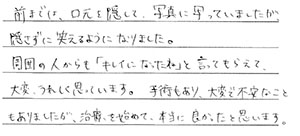 前までは、口元を隠して、写真に写っていましたが、
隠さずに笑えるようになりました。
周囲の人からも「キレイになったね」と言ってもらえて、
大変、うれしく思っています。 手術もあり、大変で不安なこと
もありましたが、治療を始めて、本当に良かったと思います。